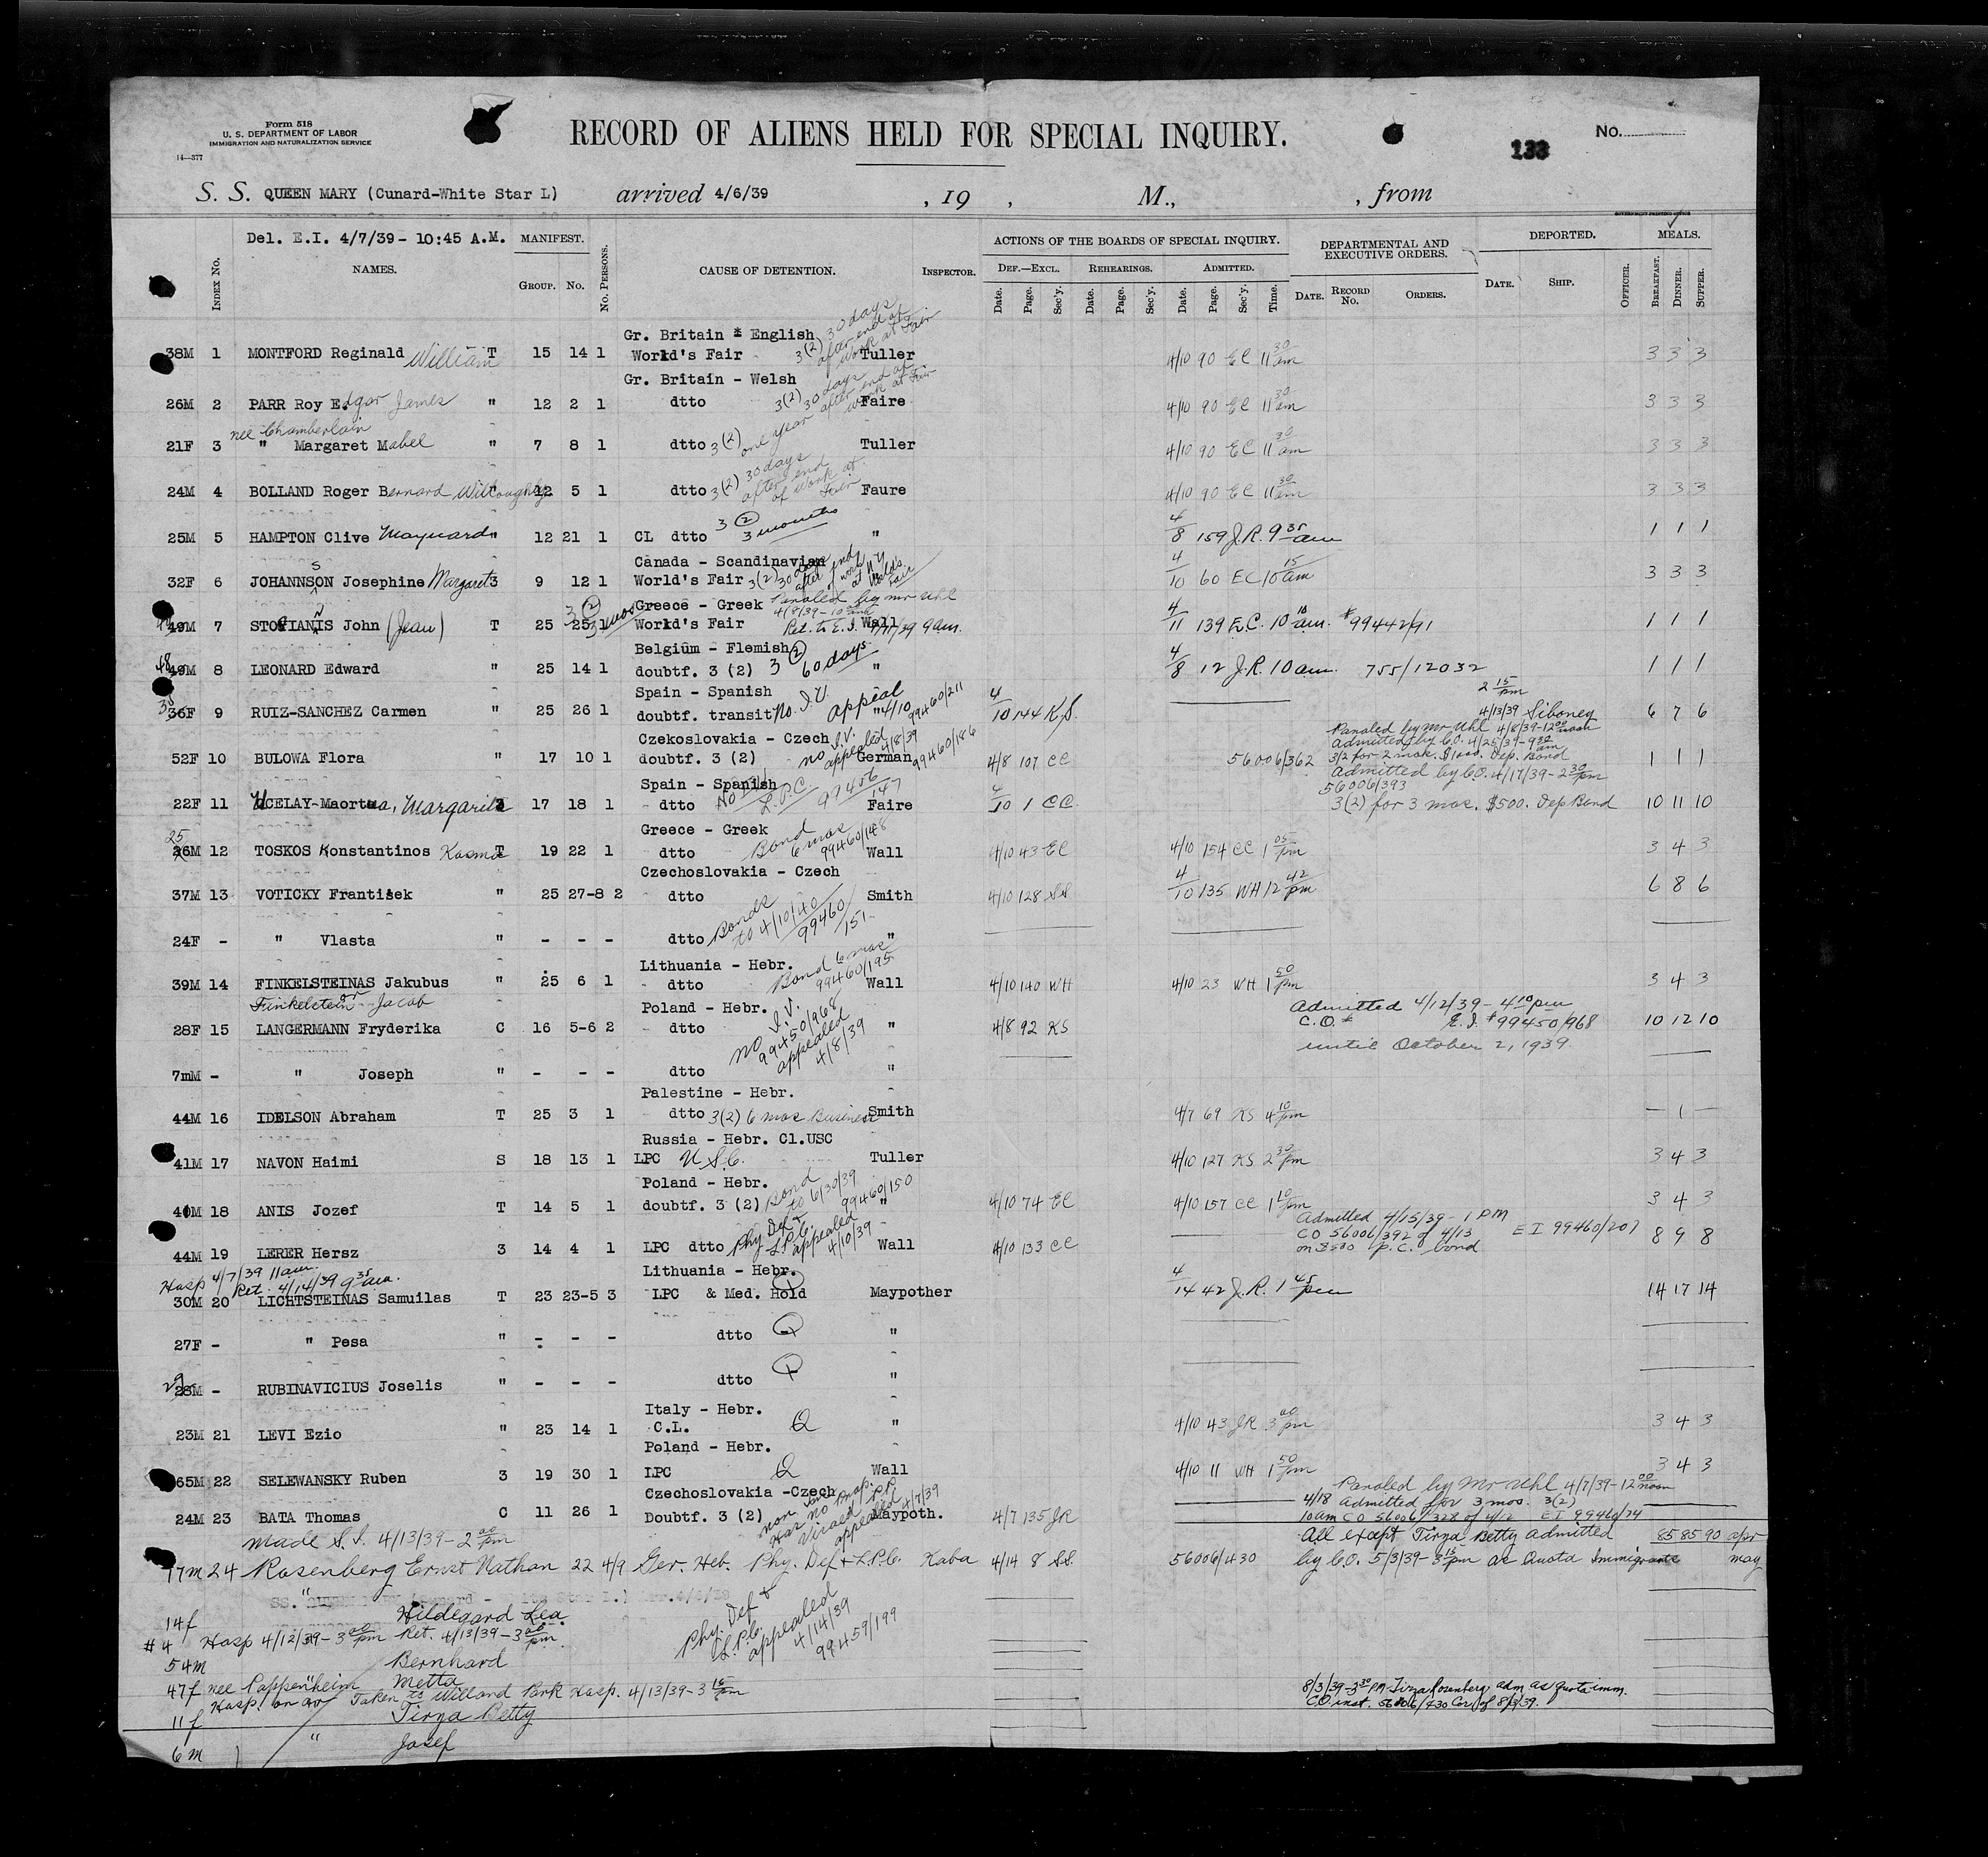 Form 518
U. S. DEPARTMENT OF LABOR
IMMIGRATION AND NATURALIZATION SERVICE
14—377
RECORD OF ALIENS HELD FOR SPECIAL INQUIRY.
133
No.
S. S. QUEEN MARY (Cunard-White Star L) arrived 4/6/39 , 19 , M., , from
GOVERNMENT PRINTING OFFICE
Del. E.I. 4/7/39 - 10:45 A.M. MANIFEST. ACTIONS OF THE BOARDS OF SPECIAL INQUIRY. DEPARTMENTAL AND EXECUTIVE ORDERS. DEPORTED. MEALS.
INDEX No. NAMES. GROUP. No. No. PERSONS. CAUSE OF DETENTION. INSPECTOR. DEF.—EXCL. REHEARINGS. ADMITTED.
Date. Page. Sec'y. Date. Page. Sec'y. Date. Page. Sec'y. Time. DATE. RECORD No. ORDERS. DATE. SHIP. OFFICER. BREAKFAST. DINNER. SUPPER.
Gr. Britain * English 3(2) 30 days after end of work at Fair
38M 1 MONTFORD Reginald William T 15 14 1 World's Fair Tuller 4/10 90 EC 11 30 am 3 3 3
Gr. Britain - Welsh 3(2) 30 days after end of work at Fair
26M 2 PARR Roy Edgar James " 12 2 1 dtto Faire 4/10 90 EC 11 30 am 3 3 3
nee Chamberlain
21F 3 " Margaret Mabel " 7 8 1 dtto 3(2) one year Tuller 4/10 90 EC 11 30 am 3 3 3
24M 4 BOLLAND Roger Bernard Willoughby " 12 5 1 dtto 3(2) 30 days after end of work at Fair Faure 4/10 90 EC 11 30 am 3 3 3
25M 5 HAMPTON Clive Maynard " 12 21 1 CL dtto 3 (2) 3 months " 4/8 159 J.R. 9 35 am 1 1 1
Canada - Scandinavian
32F 6 JOHANNSON Josephine Margaret 3 9 12 1 World's Fair 3(2) 30 days after end of work at N.Y. World's Fair 4/10 60 EC 10 15 am 3 3 3
Greece - Greek Paroled by Mr Uhl 4/8/39 - 10
49M 7 STOFIANIS John (Jean) T 25 25 1 3 (2) 3 mos World's Fair Ret. to E.I. 4/11/39 9 am. Wall 4/11 139 E.C. 10 10 am. #99442/91 1 1 1
Belgium - Flemish
48 49M 8 LEONARD Edward " 25 14 1 doubtf. 3 (2) 3 (2) 60 days " 4/8 12 J.R. 10 am. 755/12032 1 1 1
Spain - Spanish
36F 9 RUIZ-SANCHEZ Carmen " 25 26 1 doubtf. transit No. I.V. appeal 4/10 99460/211 " 4/10 144 K.S. 2 15 pm 4/13/39 Siboney 6 7 6
Czekoslovakia - Czech no I.V. appealed 4/8/39 99460/186 Paroled by Mr Uhl 4/8/39 - 12 00 noon
52F 10 BULOWA Flora " 17 10 1 doubtf. 3 (2) German 4/8 107 CC 56006/362 Admitted by CO. 4/25/39 - 9 30 am 3/2 for 2 mos. $1000. Dep. Bond 1 1 1
Spain - Spanish Admitted by CO. 4/17/39 - 2 30 pm
22F 11 UCELAY-Maortua, Margarita 3 17 18 1 dtto L.P.C. 99456/147 Faire 4/10 1 CC. 56006/393 3(2) for 3 mos. $500. Dep Bond 10 11 10
Greece - Greek
25 26M 12 TOSKOS Konstantinos Kosma T 19 22 1 dtto Bond 6 mos 99460/148 Wall 4/10 43 EC 4/10 154 CC 1 05 pm 3 4 3
Czechoslovakia - Czech
37M 13 VOTICKY Frantisek " 25 27-8 2 dtto Smith 4/10 128 SS 4/10 135 WH 12 42 pm 6 8 6
24F - " Vlasta " - - - dtto Bonds to 4/10/40 99460/151 "
Lithuania - Hebr. Bond 6 mos 99460/195
39M 14 FINKELSTEINAS Jakubus " 25 6 1 dtto Wall 4/10 140 WH 4/10 23 WH 1 50 pm 3 4 3
Finkelstein or Jacob
Poland - Hebr. Admitted 4/12/39 - 4 10 pm
28F 15 LANGERMANN Fryderika C 16 5-6 2 dtto no I.V. 99450/968 appealed 4/8/39 " 4/8 92 KS C.O.* E.I. #99450/968 10 12 10
until October 2, 1939.
7mM - " Joseph " - - - dtto "
Palestine - Hebr.
44M 16 IDELSON Abraham T 25 3 1 dtto 3(2) 6 mos Business Smith 4/7 69 KS 4 10 pm - 1 -
Russia - Hebr. Cl.USC
41M 17 NAVON Haimi S 18 13 1 LPC U.S.C. Tuller 4/10 127 KS 2 30 pm 3 4 3
Poland - Hebr.
40M 18 ANIS Jozef T 14 5 1 doubtf. 3 (2) Bond to 6/30/39 99460/150 " 4/10 74 EC 4/10 157 CC 1 10 pm 3 4 3
Admitted 4/15/39 - 1 PM
44M 19 LERER Hersz 3 14 4 1 LPC dtto Phy Def & L.P.C. appealed 4/10/39 Wall 4/10 133 CC CO 56006/392 of 4/13 EI 99460/207 on $500 P.C. bond 8 9 8
Hosp 4/7/39 11am. Ret. 4/14/39 9 35 am.
Lithuania - Hebr.
30M 20 LICHTSTEINAS Samuilas T 23 23-5 3 LPC & Med. Hold Q Maypother 4/14 42 J.R. 1 45 pm 14 17 14
27F - " Pesa " - - - dtto Q "
29 28M - RUBINAVICIUS Joselis " - - - dtto Q "
Italy - Hebr.
23M 21 LEVI Ezio " 23 14 1 C.L. Q " 4/10 43 JR 3 00 pm 3 4 3
Poland - Hebr.
65M 22 SELEWANSKY Ruben 3 19 30 1 LPC Q Wall 4/10 11 WH 1 50 pm 3 4 3
Czechoslovakia -Czech Paroled by Mr Uhl 4/7/39 - 12 00 noon
24M 23 BATA Thomas C 11 26 1 Doubtf. 3 (2) appealed 4/7/39 Maypoth. 4/7 135 JR 4/18 Admitted for 3 mos. 3(2)
10am CO 56006/328 of 4/12 EI 99460/74
made S.I. 4/13/39 - 2 00 pm All except Tirza Betty admitted 85 85 90 apr
17m 24 Rosenberg Ernst Nathan 22 4/9 Ger. Heb. Phy. Def & L.P.C. Kaba 4/14 8 SS. 56006/430 by CO. 5/3/39 - 3 15 pm as Quota Immigrants may
14f " Hildegard Lea
#4 Hosp 4/12/39 - 3 00 pm Ret. 4/13/39 - 3 00 pm. Phy. Def & L.P.C. appealed 4/14/39 99459/199
54m Bernhard
47f nee Pappenheim Metta
Hosp. on arr Taken to Willard Park Hosp. 4/13/39 - 3 15 pm 8/3/39 - 3 30 PM Tirza Rosenberg adm as quota imm.
11f Tirza Betty CO inst. 56006/430 Cor of 8/3/39.
6m " Josef